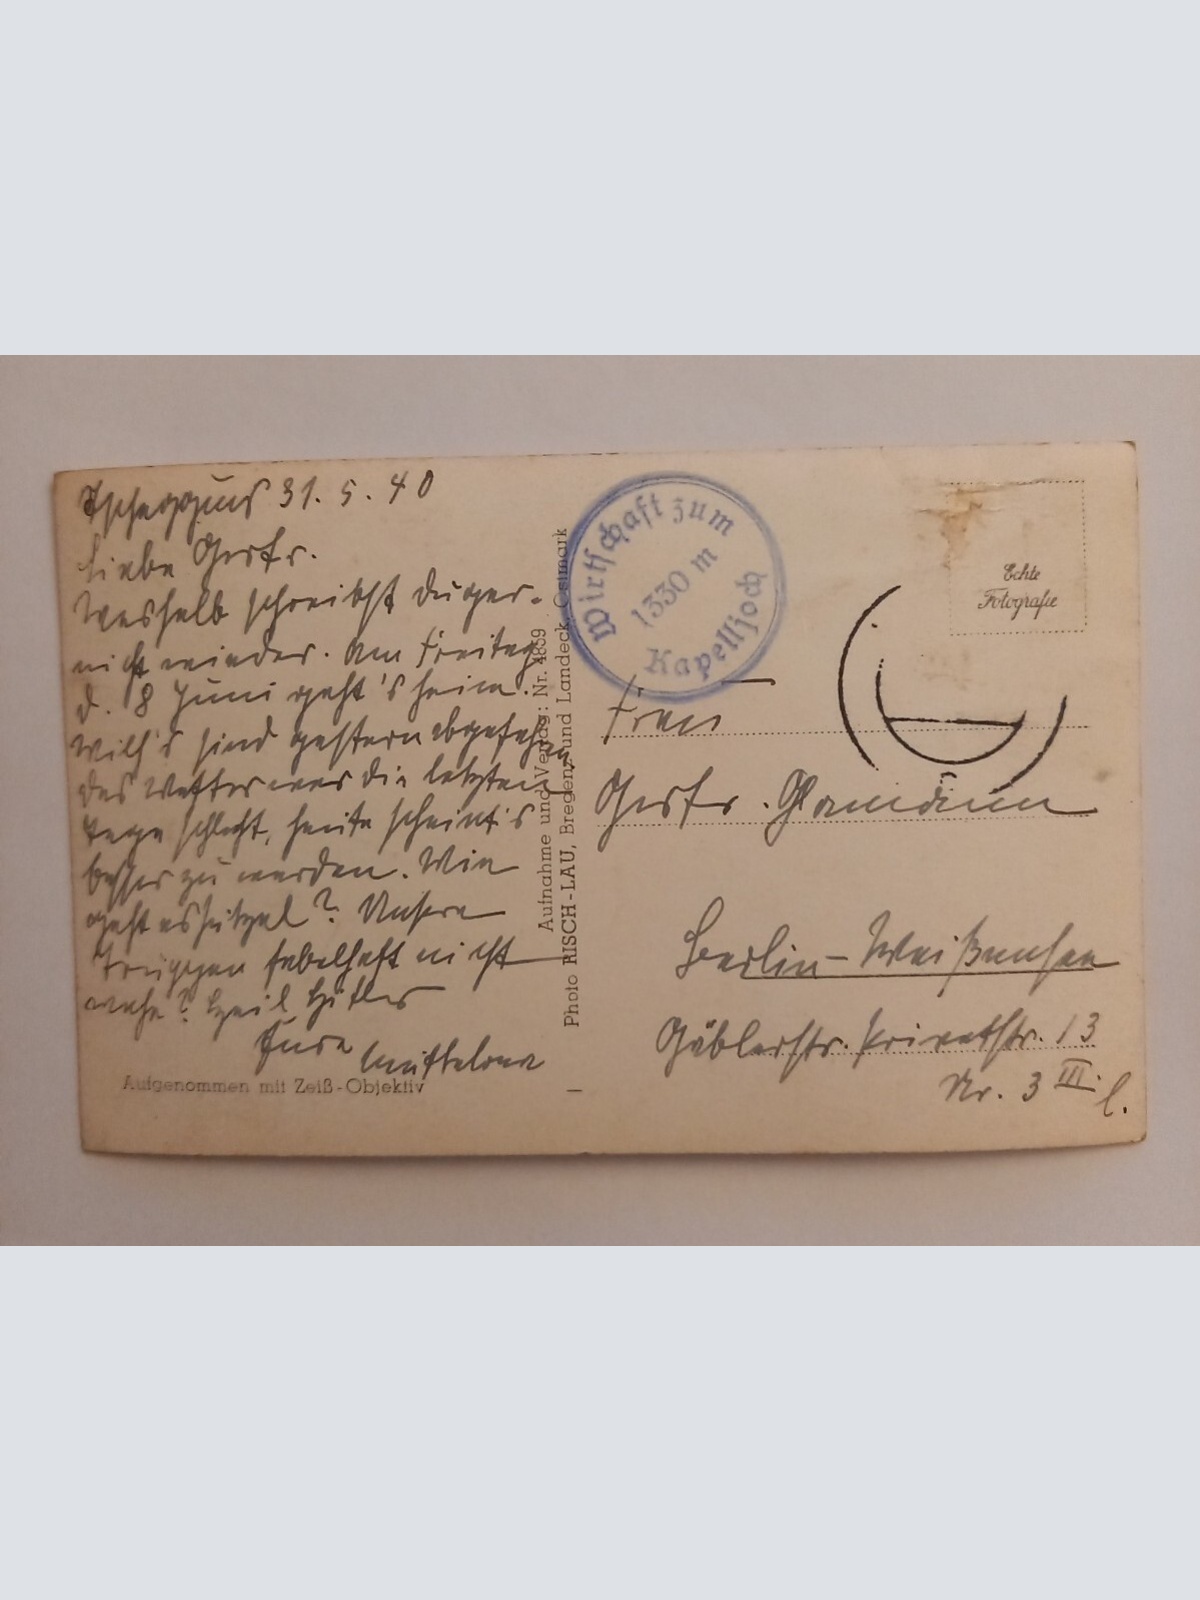 Tschagguns 31. 5. 40
Liebe
Weshalb schreibst du gar-
nicht wieder. Am Freitag
d. 8 Juni geht's heim.
sind gestern abgefahren
das Wetter war die letzten
Tage schlecht, heute scheint's
besser zu werden. Wie
geht es ? Unsere
Truppen fabelhaft nicht
wahr? Heil Hitler
Eure
Aufgenommen mit Zeiß-Objektiv
Aufnahme und Verlag: Nr. 4859
Photo RISCH-LAU, Bregenz und Landeck, Ostmark
Wirtschaft zum
1330 m
Kapelljoch
Echte
Fotografie
Frau
Berlin-Weißensee
Gäblerstr. Privatstr. 13
Nr. 3 III l.